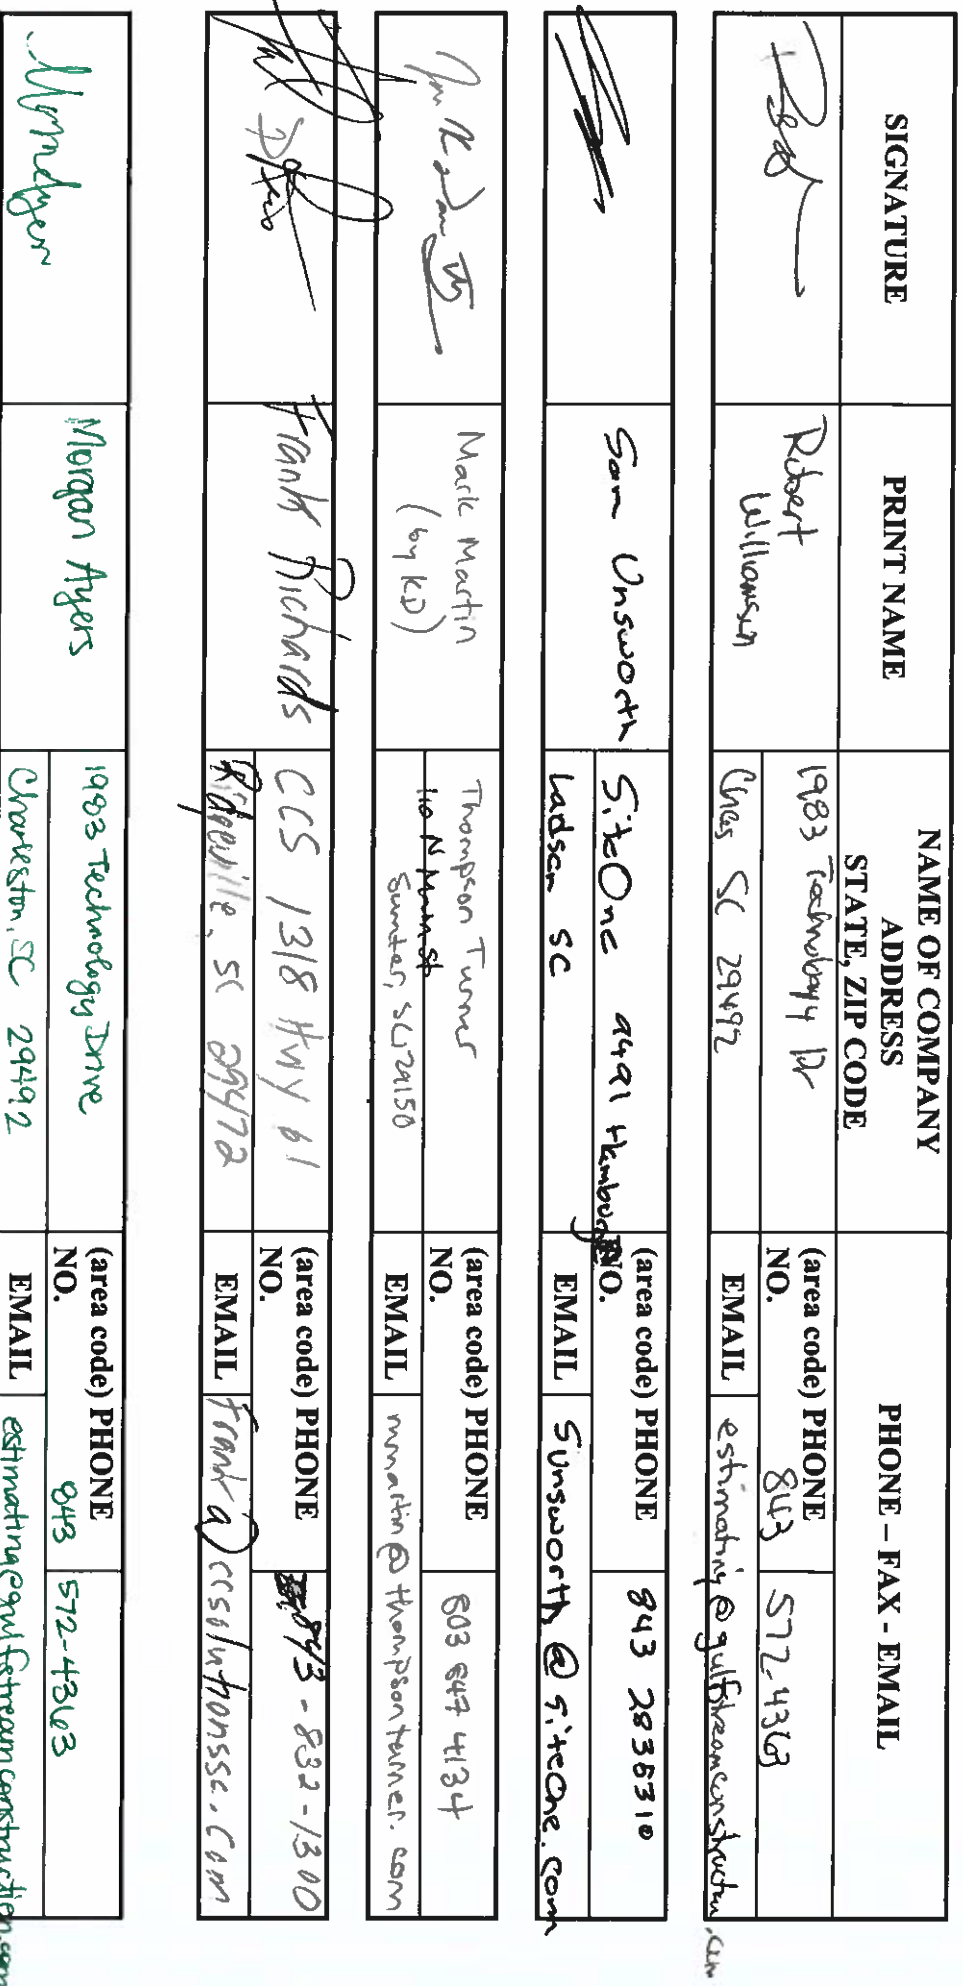 SIGNATURE
PRINT NAME
NAME OF COMPANY
ADDRESS
STATE, ZIP CODE
PHONE – FAX - EMAIL
Robert
Williamson
1983 Technology Dr
Chas SC 29492
(area code) PHONE
NO.
843 572-4363
EMAIL
estimating@gulfstreamconstruction.com
Sam Unsworth
SiteOne 9491 Hamburg
Ladson SC
(area code) PHONE
NO.
843 2835310
EMAIL
Sunsworth@siteone.com
Mark Martin
(by KD)
Thompson Turner
110 N Main St
Sumter, SC 29150
(area code) PHONE
NO.
803 847 4134
EMAIL
mmartin@thompsonturner.com
Frank Richards
CCS 1318 Hwy 61
Ridgeville, SC 29472
(area code) PHONE
NO.
843-832-1300
EMAIL
frank@ccsolutionssc.com
Morgan Ayers
1983 Technology Drive
Charleston, SC 29492
(area code) PHONE
NO.
843 572-4363
EMAIL
estimating@gulfstreamconstruction.com